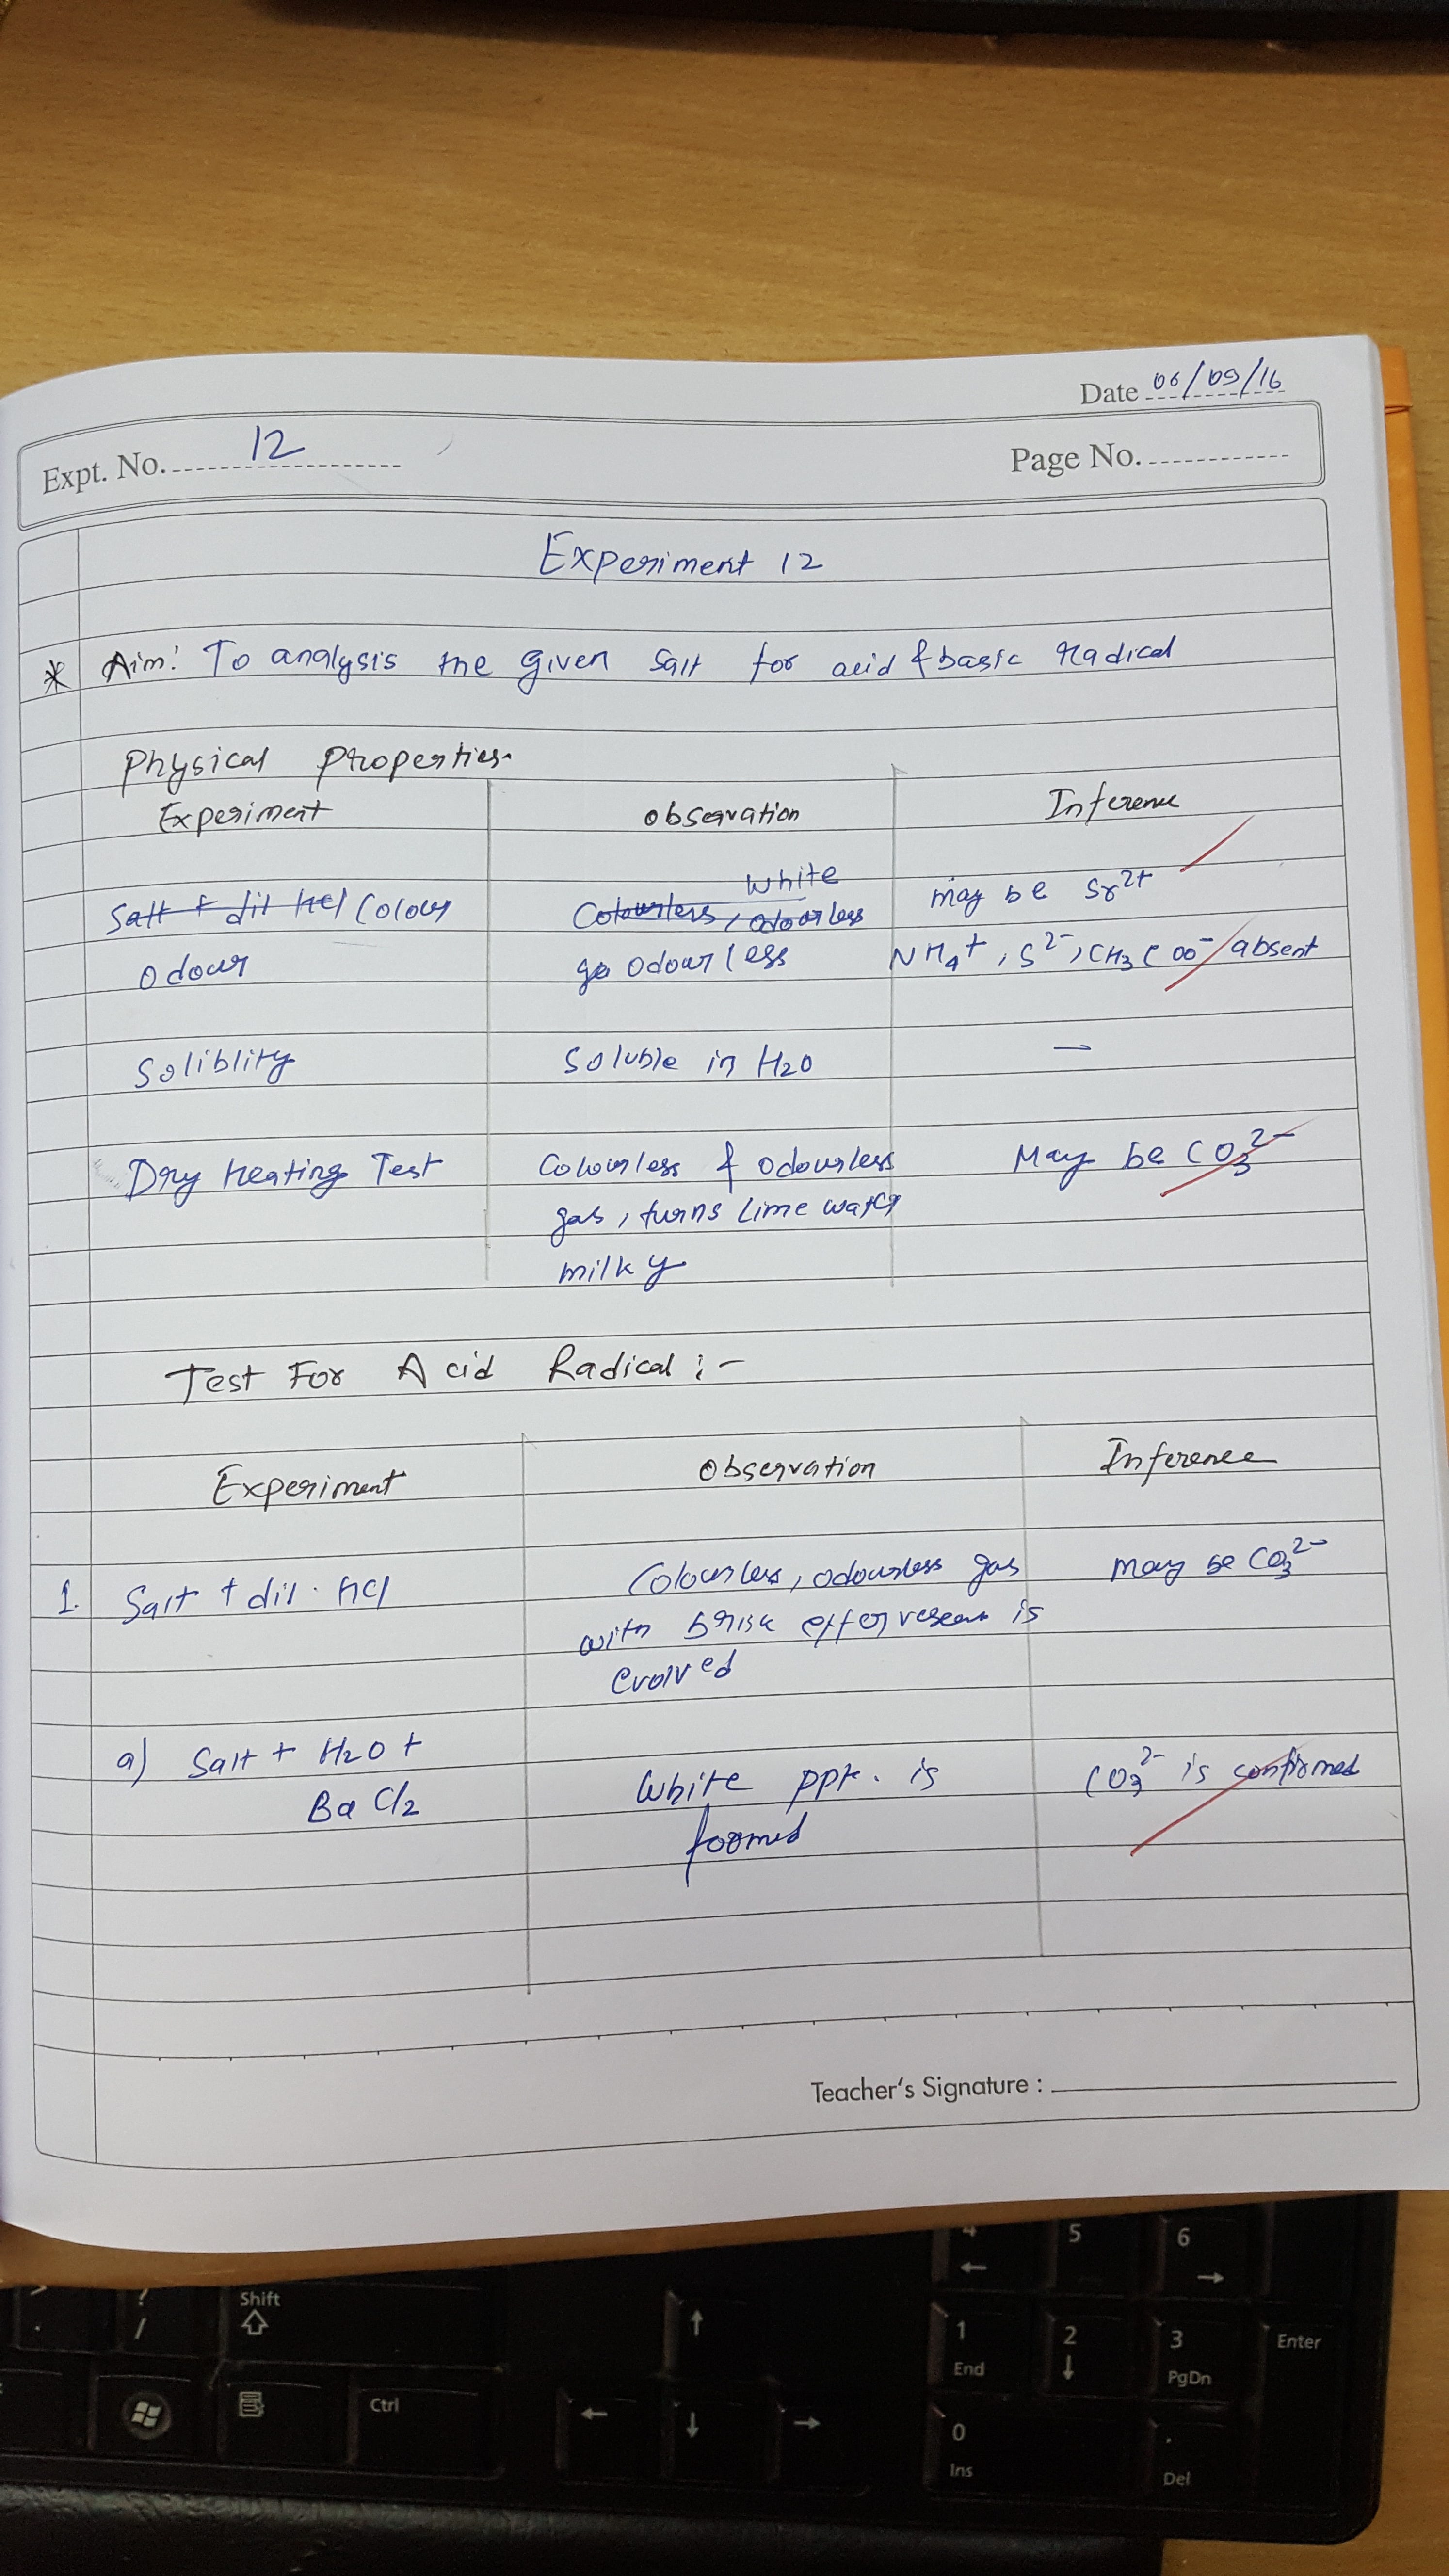 Date 06/09/16
Expt. No. 12
Page No.
Experiment 12
* Aim: To analysis the given salt for acid & basic radical
Physical Properties.
Experiment Observation Inference
Salt + dil Hcl Colour Colourless, odourless White may be Sr2+
Odour go odourless NH4+, S2-, CH3COO- absent
Soliblity Soluble in H2O —
Dry Heating Test Colourless & odourless May be CO3 2-
gas, turns lime water
milky
Test For Acid Radical :-
Experiment Observation Inference
1. Salt + dil. HCl Colourless, odourless gas may be CO3 2-
with brisk effervescen is
evolved
a) Salt + H2O + White ppt. is CO3 2- is confirmed
BaCl2 formed
Teacher's Signature :
4 5 6
> . ? / Shift
1 End 2 3 PgDn Enter
Ctrl
0 Ins . Del